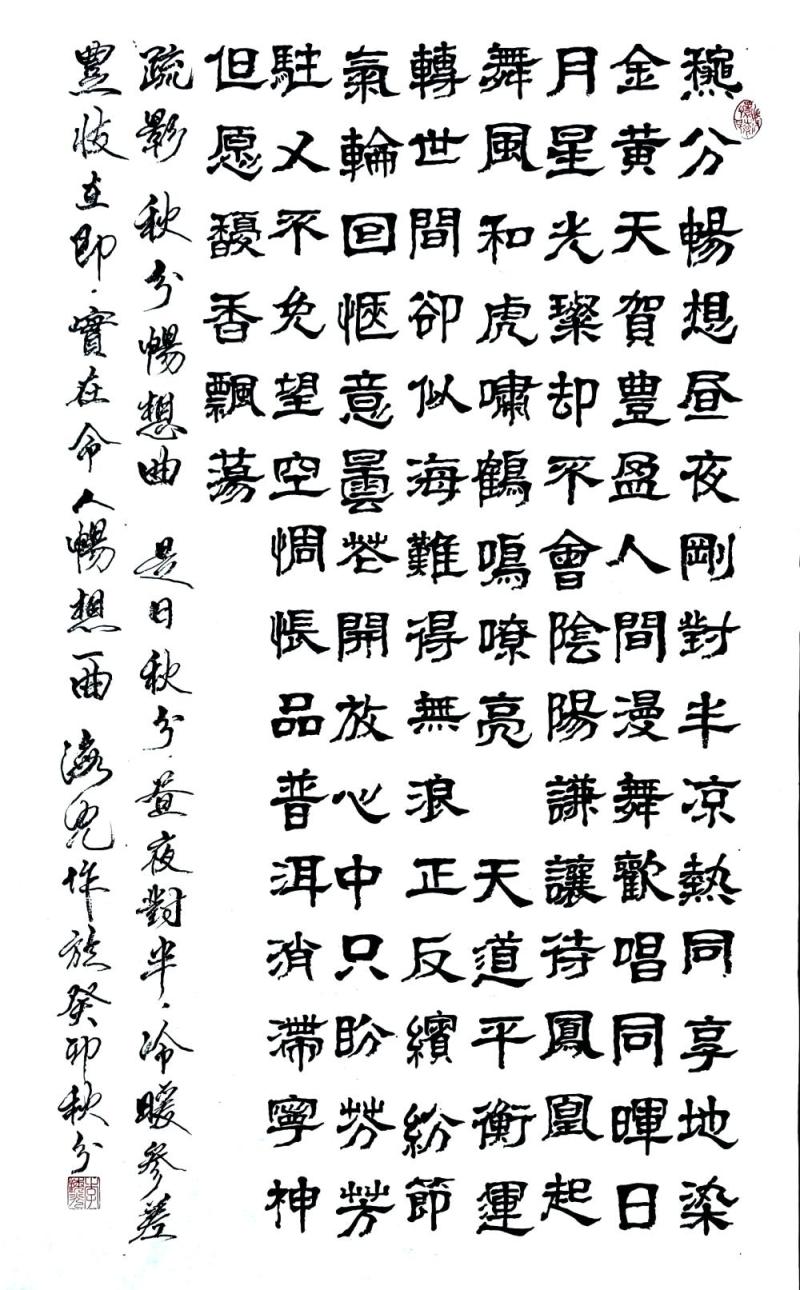 龝分暢想昼夜剛對半凉熱同享地染
金黄天賀豊盈人間漫舞歡唱同暉日
月星光璨却不會陰陽謙讓待鳳凰起
舞風和虎嘯鶴鳴嘹亮 天道平衡運
轉世間卻似海難得無浪 正反繽紛節
氣輪回愜意曇花開放心中只盼芬芳
駐又不免望空惆悵品普洱消滯寧神
但愿馥香飄蕩
疏影 秋分暢想曲 是日秋分、昼夜對半、冷暖參差
豊收在即、實在令人暢想一曲 作於癸卯秋分